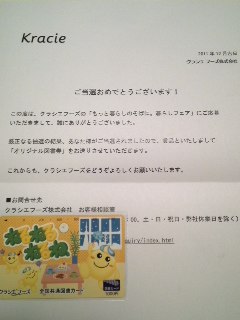 Kracie
クラシエフーズ株式会社
ご当選おめでとうございます！
この度は、クラシエフーズの「もっと暮らしのそばに。暮らしフェア」にご応募
いただきまして、誠にありがとうございました。
厳正なる抽選の結果、あなた様がご当選されましたので、賞品といたしまして
「オリジナル図書券」をお送りさせていただきます。
これからも、クラシエフーズをどうぞよろしくお願いいたします。
■お問合せ先
クラシエフーズ株式会社 お客様相談室
:00、土・日・祝日・弊社休業日を除く)
quiry/index.html
ねるねるねるね
クラシエフーズ
全国共通図書カード